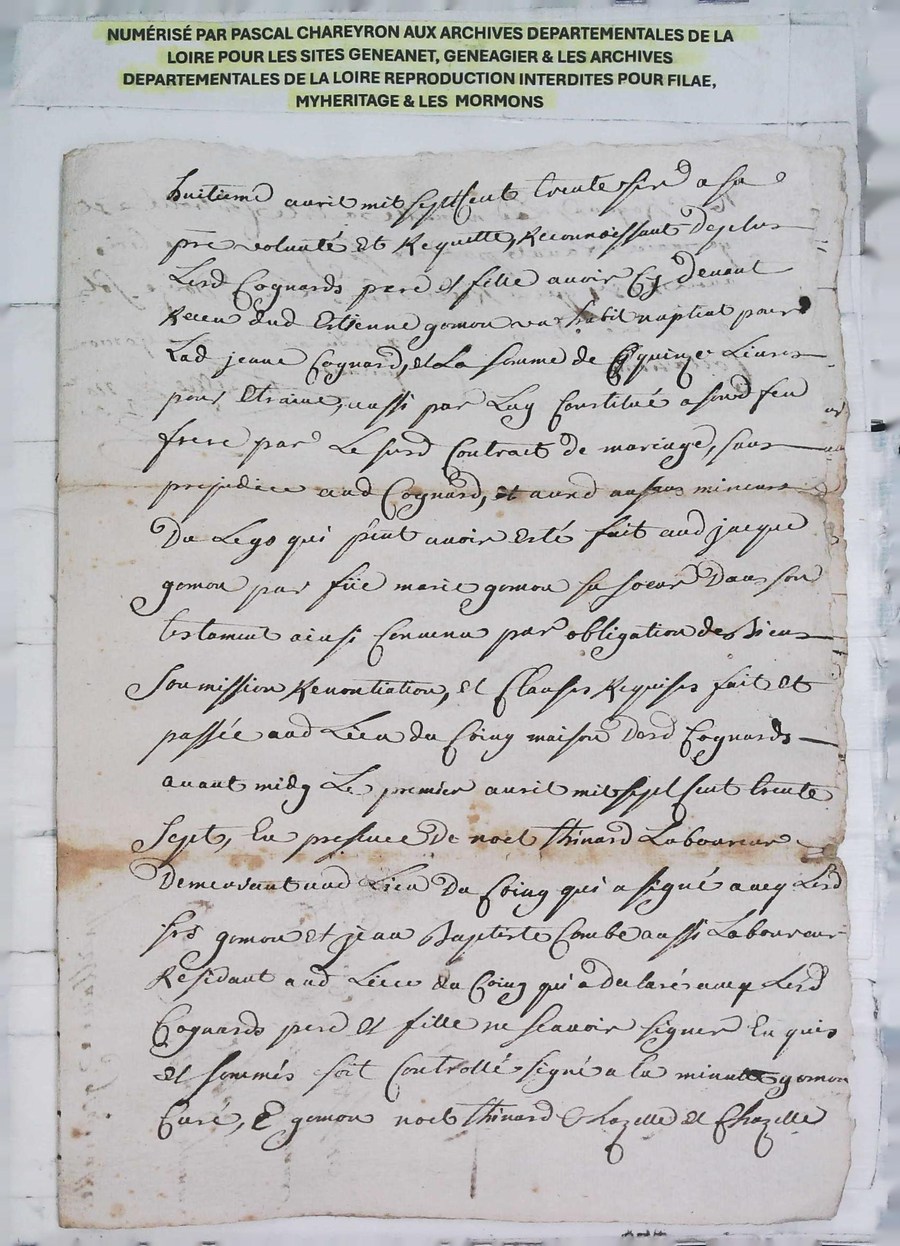 NUMÉRISÉ PAR PASCAL CHAREYRON AUX ARCHIVES DEPARTEMENTALES DE LA
LOIRE POUR LES SITES GENEANET, GENEAGIER & LES ARCHIVES
DEPARTEMENTALES DE LA LOIRE REPRODUCTION INTERDITES POUR FILAE,
MYHERITAGE & LES MORMONS
huitieme avril mil sept cent trente a sa
volonté et Requette, Reconnoissant deplus
Lesd Cognards pere et fille avoir cy devant
Receu dud Estienne gomon un habit nuptial pour
Lad jeane Cognard, et La somme de quinze Livres
pour Etraine, aussi par Luy Constitué a sond feu
frere par Le susd Contrait de mariage, sans
prejudice aud Cognard, et aux mineurs
Du Lego qui peut avoir esté fait aud jacque
gomon par füe marie gomon sa soeur Dans son
testament ainsi Convenu par obligation de Biens
Soumission Renontiation, et Clauses Requises fait et
passée aud Lieu du Coing maison Desd Cognards
avant midy Le premier avril mil sept cent trente
Sept, En presence De noel thinard Laboureur
Demeurant aud Lieu Du Coing qui a signé avecq Lesd
srs gomon et jean Baptiste Combe aussi Laboureur
Residant aud Lieu du Coing qui a declaré avecq Lesd
Cognards pere et fille ne scavoir signer Enquis
et sommés soit Controllé signé a la minutte gomon
Curé, E gomon noel thinard Chazelle et Chazelle